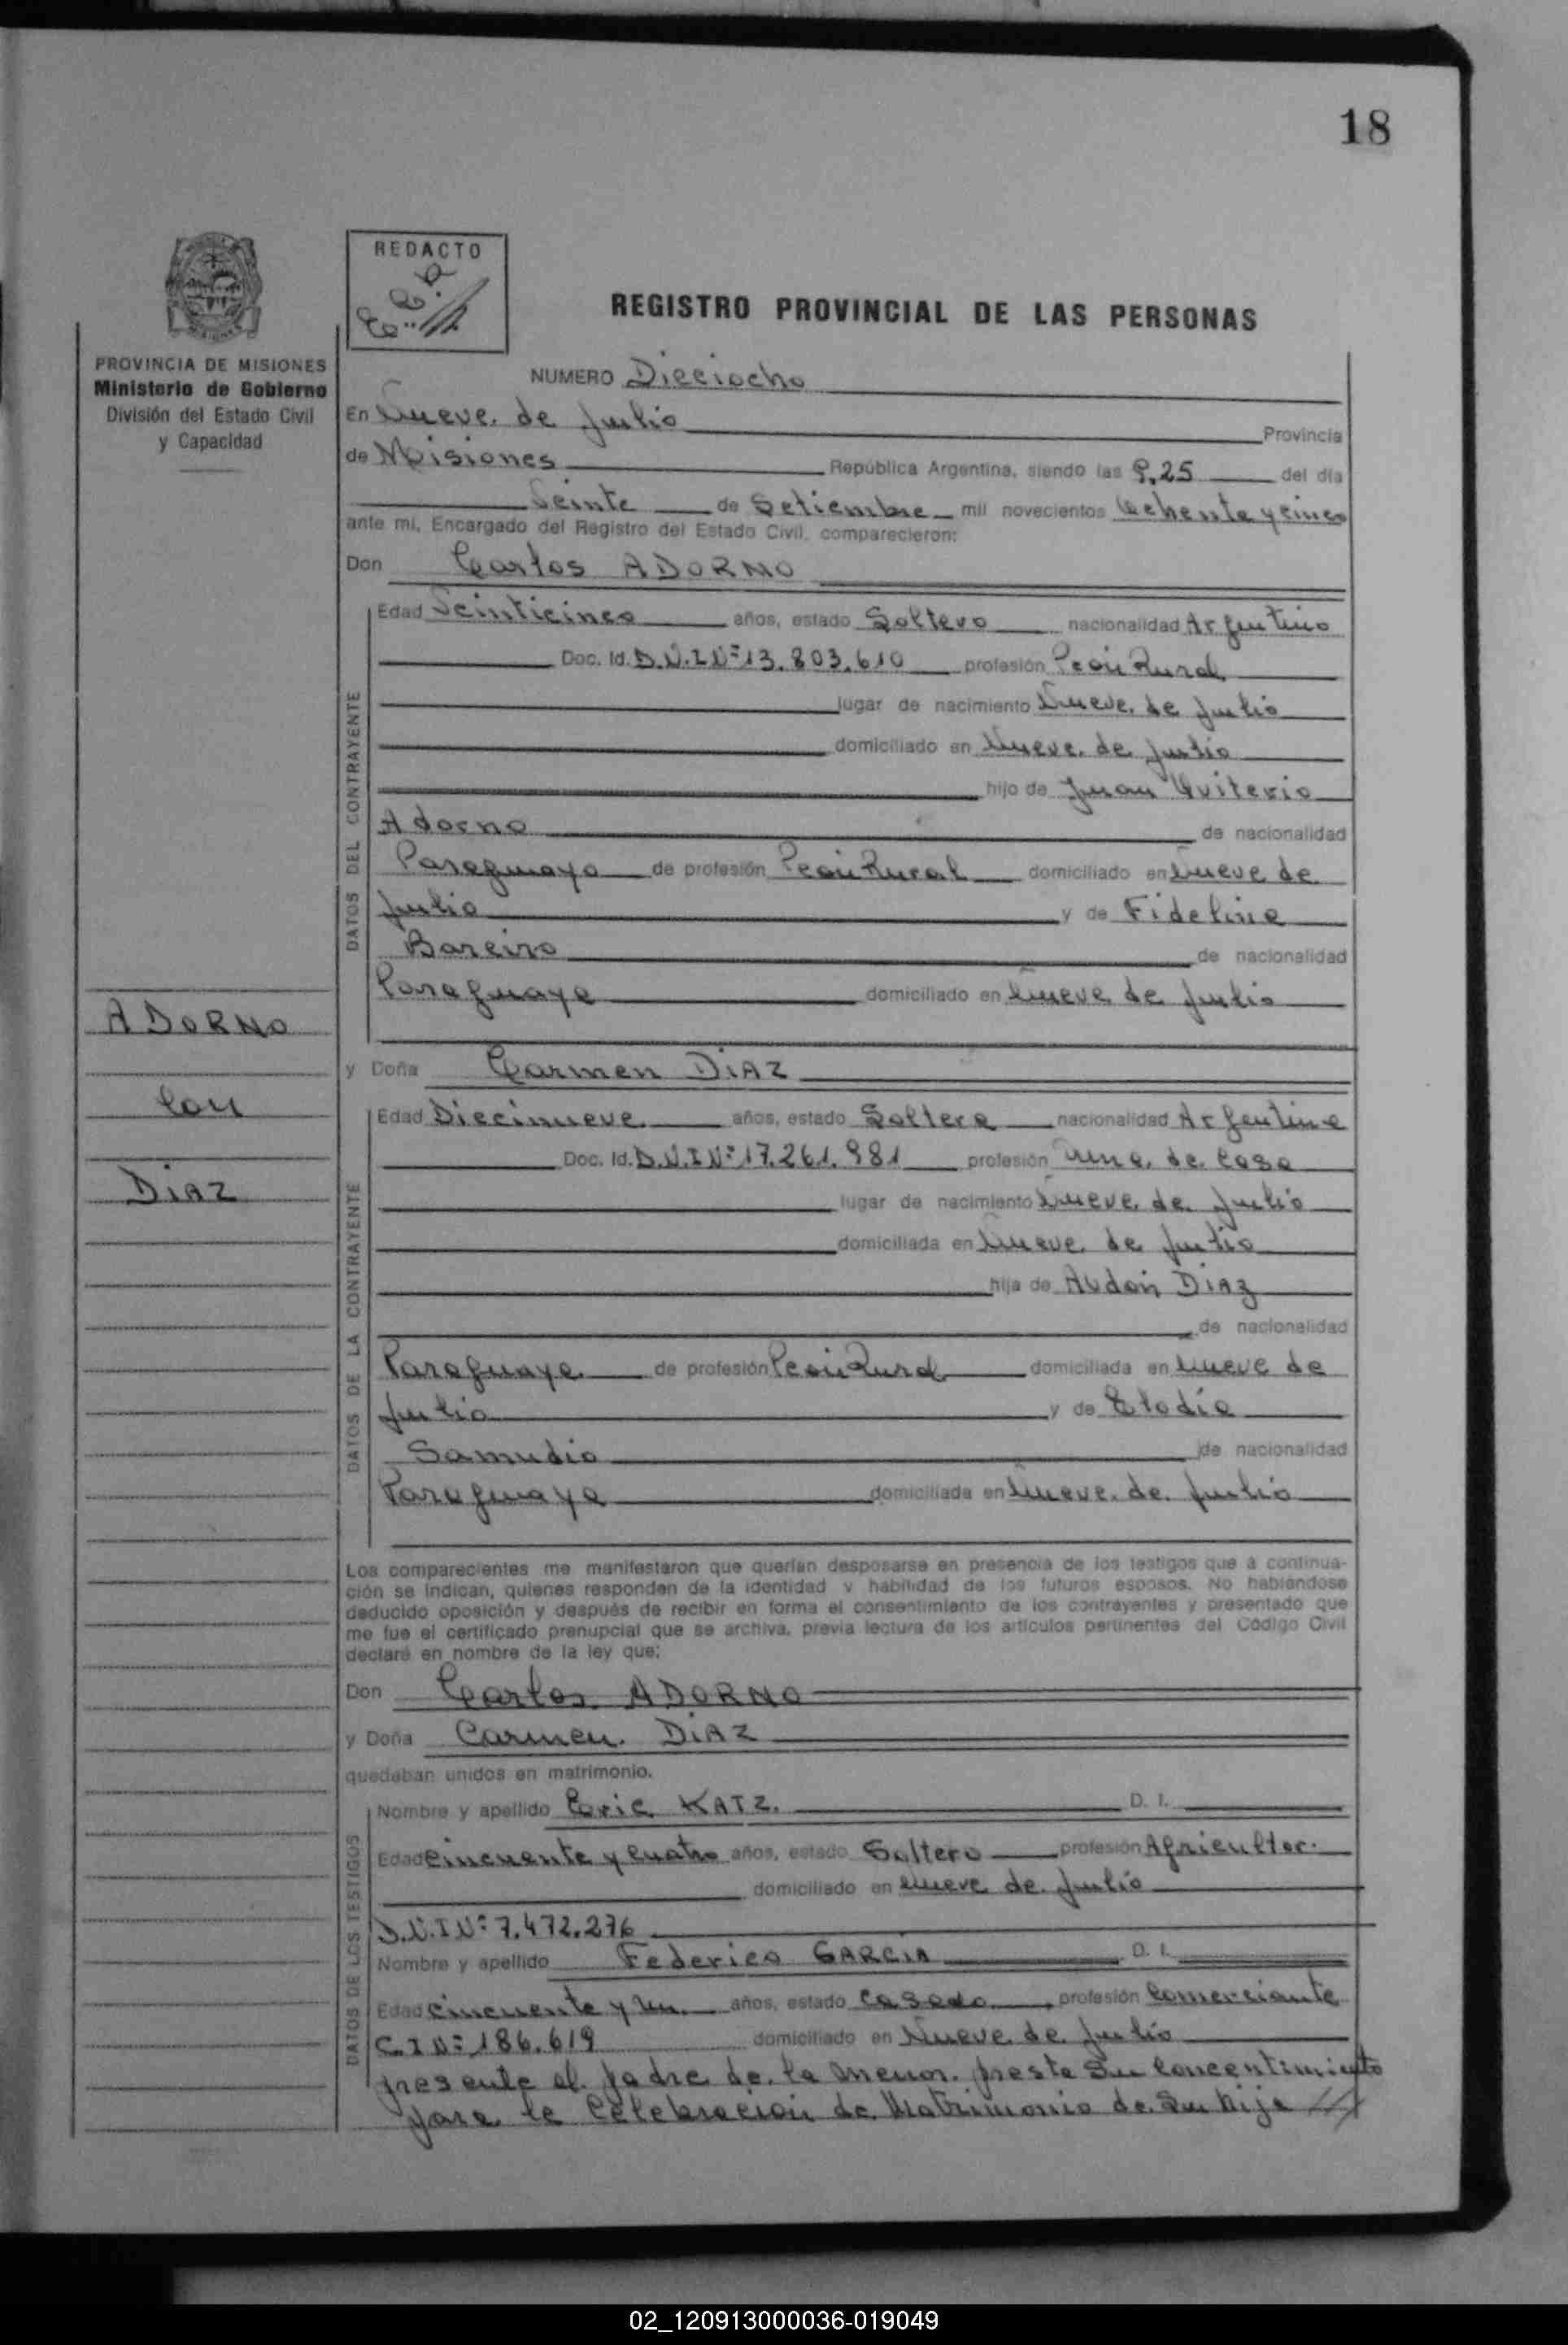 18
REDACTO
REGISTRO PROVINCIAL DE LAS PERSONAS
PROVINCIA DE MISIONES
Ministerio de Gobierno
División del Estado Civil
y Capacidad
NUMERO Dieciocho
En Nueve de Julio Provincia
de Misiones República Argentina, siendo las 9,25 del día
Veinte de Setiembre mil novecientos Ochenta y cinco
ante mí, Encargado del Registro del Estado Civil, comparecieron:
Don Carlos ADORNO
DATOS DEL CONTRAYENTE
Edad Veinticinco años, estado Soltero nacionalidad Argentino
Doc. Id. D.N.I Nº 13.803.610 profesión Peón Rural
lugar de nacimiento Nueve de Julio
domiciliado en Nueve de Julio
hijo de Juan Quiterio
Adorno de nacionalidad
Paraguaya de profesión Peón Rural domiciliado en Nueve de
Julio y de Fidelina
Bareiro de nacionalidad
Paraguaya domiciliado en Nueve de Julio
ADORNO
Con
DIAZ
y Doña Carmen DIAZ
DATOS DE LA CONTRAYENTE
Edad Diecinueve años, estado Soltera nacionalidad Argentina
Doc. Id. D.N.I Nº 17.261.981 profesión Ama de Casa
lugar de nacimiento Nueve de Julio
domiciliada en Nueve de Julio
hija de Audón DIAZ
de nacionalidad
Paraguaya de profesión Peón Rural domiciliada en Nueve de
Julio y de Elodia
Samudio de nacionalidad
Paraguaya domiciliada en Nueve de Julio
Los comparecientes me manifestaron que querían desposarse en presencia de los testigos que a continua-
ción se indican, quienes responden de la identidad y habilidad de los futuros esposos. No habiéndose
deducido oposición y después de recibir en forma el consentimiento de los contrayentes y presentado que
me fue el certificado prenupcial que se archiva, previa lectura de los artículos pertinentes del Código Civil
declaré en nombre de la ley que:
Don Carlos ADORNO
y Doña Carmen DIAZ
quedaban unidos en matrimonio.
DATOS DE LOS TESTIGOS
Nombre y apellido Eric KATZ. D. I.
Edad Cincuenta y Cuatro años, estado Soltero profesión Agricultor.
domiciliado en Nueve de Julio
D.N.I Nº 7.472.276
Nombre y apellido Federico GARCIA D. I.
Edad Cincuenta y Un años, estado Casado profesión Comerciante
C.I Nº 186.619 domiciliado en Nueve de Julio
presente el padre de la menor presta Su Concentimiento
para la Celebración de Matrimonio de Su hija
02_120913000036-019049